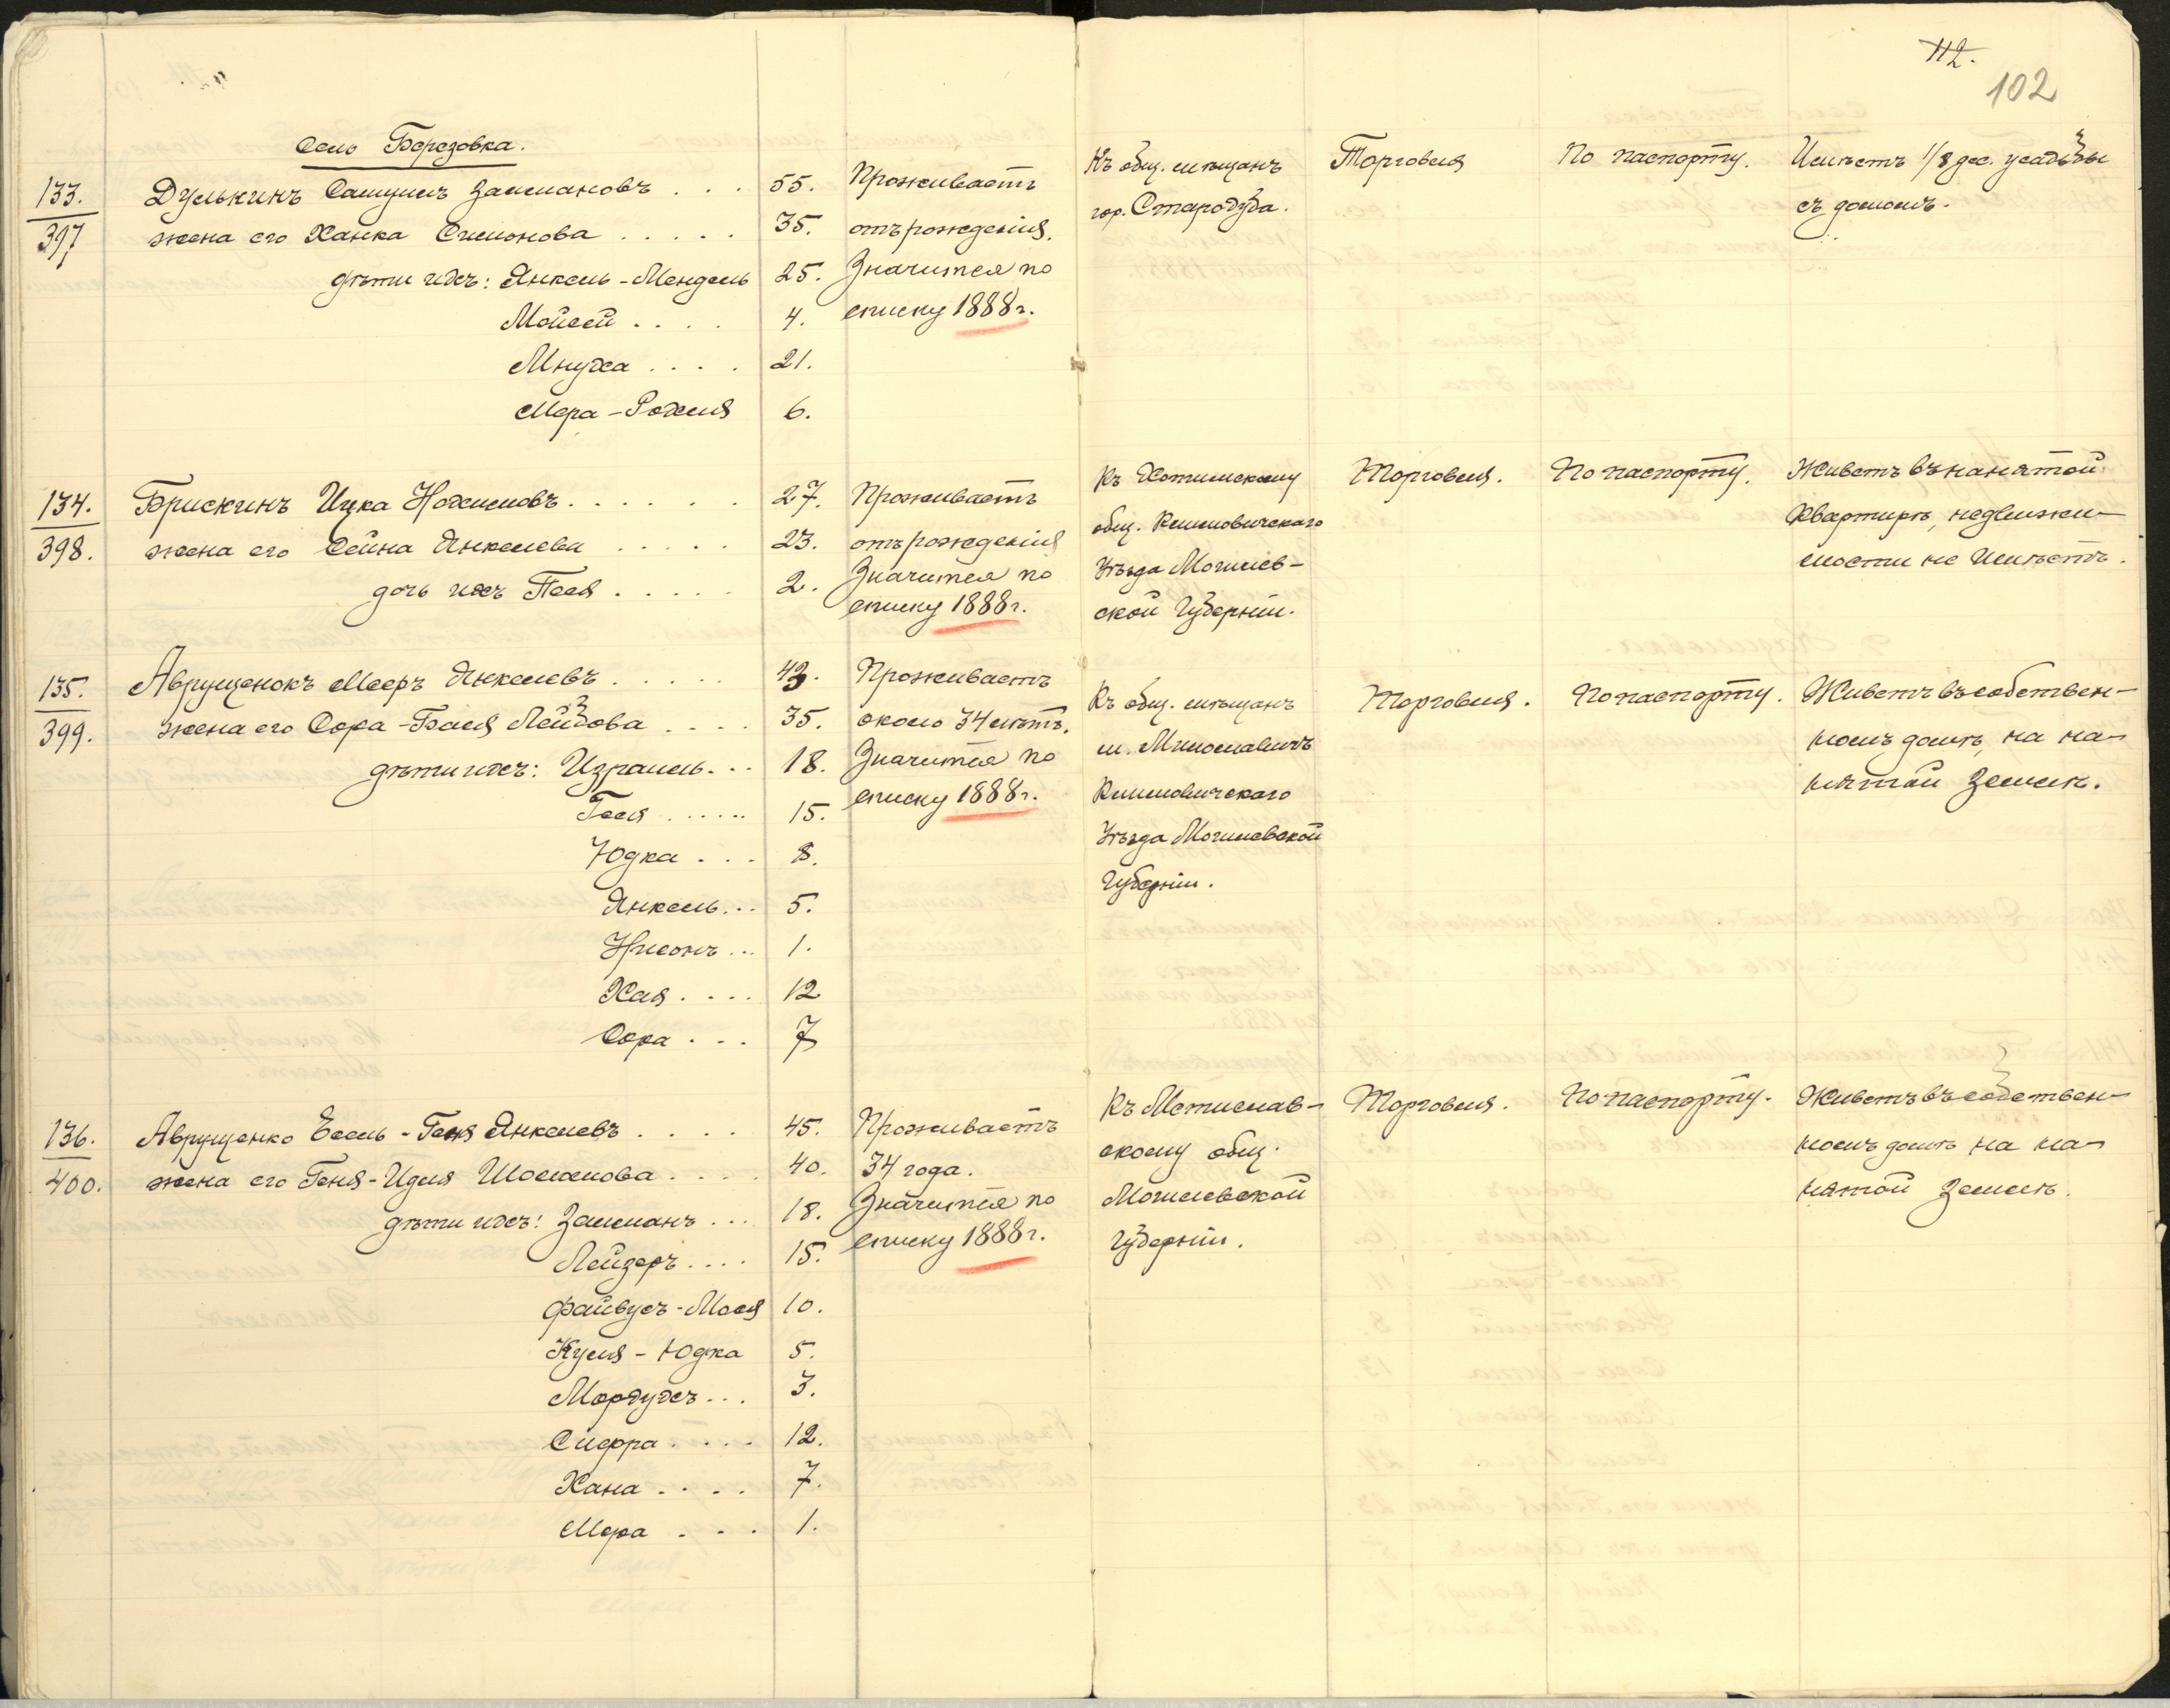 112.
102
Село Березовка.
133.
397
Дулькинъ Самуилъ Залмановъ . . . 55.
жена его Ханка Симонова . . . . . 35.
дѣти ихъ: Янкель-Мендель 25.
Мойсей . . . . 4.
Мнуха . . . . 21.
Мера-Рохля 6.
Проживаетъ
отъ рожденія.
Значится по
списку 1888 г.
Къ общ. мѣщанъ
гор. Стародуба.
Торговля
По паспорту.
Имѣетъ 1/8 дес. усадьбы
съ домомъ.
134.
398.
Брискинъ Ицка Нохимовъ . . . . . . 27.
жена его Сейна Янкелева . . . . . 23.
дочь ихъ Песя . . . . . 2.
Проживаетъ
отъ рожденія
Значится по
списку 1888 г.
Къ Хотимскому
общ. Климовичскаго
Уѣзда Могилев-
ской Губерніи.
Торговля.
По паспорту.
Живетъ въ нанятой
квартирѣ, недвижи-
мости не имѣетъ.
135.
399.
Аврущенокъ Мееръ Янкелевъ . . . . . 43.
жена его Сора-Бася Лейбова . . . . 35.
дѣти ихъ: Израиль. . . 18.
Геся . . . . . . 15.
Юдка . . . 8.
Янкель. . . 5.
Нисонъ . . . 1.
Хая . . . . 12
Сора . . . 7
Проживаетъ
около 34 лѣтъ.
Значится по
списку 1888 г.
Къ общ. мѣщанъ
м. Милославичъ
Климовичскаго
Уѣзда Могилевской
Губерніи.
Торговля.
По паспорту.
Живетъ въ собствен-
номъ домѣ, на на-
нятой землѣ.
136.
400.
Аврущенко Есель-Геня Янкелевъ . . . . 45.
жена его Геня-Идля Шоломова . . . . 40.
дѣти ихъ: Залманъ . . . 18.
Лейзеръ . . . . 15.
Файвусъ-Мося 10.
Куля-Юдка 5.
Мордухъ . . . 3.
Сифра . . . . 12.
Хана . . . . 7.
Мера . . . 1.
Проживаетъ
34 года.
Значится по
списку 1888 г.
Къ Мстислав-
скому общ.
Могилевской
Губерніи.
Торговля.
По паспорту.
Живетъ въ собствен-
номъ домѣ на на-
нятой землѣ.